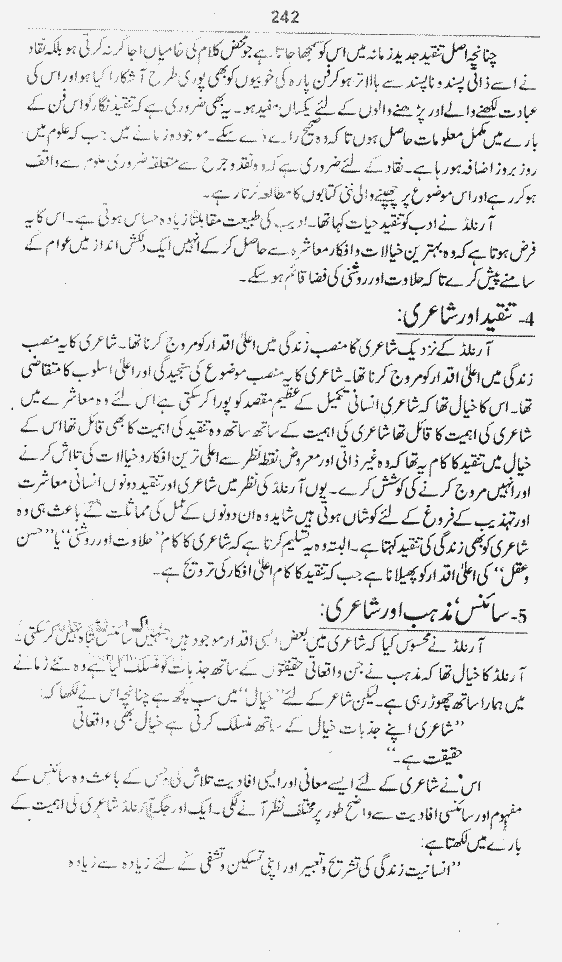 242
چنانچہ اصل تنقید جدید زمانہ میں اس کو سمجھا جاتا ہے جو محض کلام کی خامیاں اجاگر نہ کرتی ہو بلکہ نقاد
نے اسے ذاتی پسند و ناپسند سے بالاتر ہو کر فن پارہ کی خوبیوں کو بھی پوری طرح آشکارا کیا ہو اور اس کی
عبادت لکھنے والے اور پڑھنے والوں کے لئے یکساں مفید ہو۔ یہ بھی ضروری ہے کہ تنقید نگار کو اس فن کے
بارے میں مکمل معلومات حاصل ہوں تاکہ وہ صحیح رائے دے سکے۔ موجودہ زمانے میں جب کہ علوم میں
روز بروز اضافہ ہو رہا ہے۔ نقاد کے لئے ضروری ہے کہ وہ نقد و جرح سے متعلقہ ضروری علوم سے واقف
ہو کر رہے اور اس موضوع پر چھپنے والی نئی کتابوں کا مطالعہ کرتا رہے۔
آرنلڈ نے ادب کو تنقید حیات کہا تھا۔ ادیب کی طبیعت مقابلتاً زیادہ حساس ہوتی ہے۔ اس کا یہ
فرض ہوتا ہے کہ وہ بہترین خیالات و افکار معاشرہ سے حاصل کر کے انہیں ایک دلکش انداز میں عوام کے
سامنے پیش کرے تاکہ حلاوت اور روشنی کی فضا قائم ہو سکے۔
4- تنقید اور شاعری:
آرنلڈ کے نزدیک شاعری کا منصب زندگی میں اعلیٰ اقدار کو مروج کرنا تھا۔ شاعری کا یہ منصب
زندگی میں اعلیٰ اقدار کو مروج کرنا تھا۔ شاعری کا یہ منصب موضوع کی سنجیدگی اور اعلیٰ اسلوب کا متقاضی
تھا۔ اس کا خیال تھا کہ شاعری انسانی تکمیل کے عظیم مقصد کو پورا کر سکتی ہے اس لئے وہ معاشرے میں
شاعری کی اہمیت کا قائل تھا شاعری کی اہمیت کے ساتھ ساتھ وہ تنقید کی اہمیت کا بھی قائل تھا اس کے
خیال میں تنقید کا کام یہ تھا کہ وہ غیر ذاتی اور معروضی نقطہ نظر سے اعلیٰ ترین افکار و خیالات کی تلاش کرنے
اور انہیں مروج کرنے کی کوشش کرے۔ یوں آرنلڈ کی نظر میں شاعری اور تنقید دونوں انسانی معاشرت
اور تہذیب کے فروغ کے لئے کوشاں ہوتی ہیں شاید وہ ان دونوں کے عمل کی مماثلت کے باعث ہی وہ
شاعری کو بھی زندگی کی تنقید کہتا ہے۔ البتہ وہ یہ تسلیم کرتا ہے کہ شاعری کا کام ”حلاوت اور روشنی“ یا ”حسن
و عقل“ کی اعلیٰ اقدار کو پھیلانا ہے جب کہ تنقید کا کام اعلیٰ افکار کی ترویج ہے۔
5- سائنس، مذہب اور شاعری:
آرنلڈ نے محسوس کیا کہ شاعری میں بعض ایسی اقدار موجود ہیں جنہیں سائنس تباہ نہیں کر سکتی۔
آرنلڈ کا خیال تھا کہ مذہب نے جن واقعاتی حقیقتوں کے ساتھ جذبات کو منسلک کیا ہے وہ نئے زمانے
میں ہمارا ساتھ چھوڑ رہی ہے۔ لیکن شاعر کے لئے ”خیال“ میں سب کچھ ہے چنانچہ اس نے لکھا کہ
”شاعری اپنے جذبات خیال کے ساتھ منسلک کرتی ہے خیال بھی واقعاتی
حقیقت ہے۔“
اس نے شاعری کے لئے ایسے معانی اور ایسی افادیت تلاش کی جس کے باعث وہ سائنس کے
مفہوم اور سائنسی افادیت سے واضح طور پر مختلف نظر آنے لگی۔ ایک اور جگہ آرنلڈ شاعری کی اہمیت کے
بارے میں لکھتا ہے:
”انسانیت زندگی کی تشریح و تعبیر اور اپنی تسکین و تشفی کے لئے زیادہ سے زیادہ